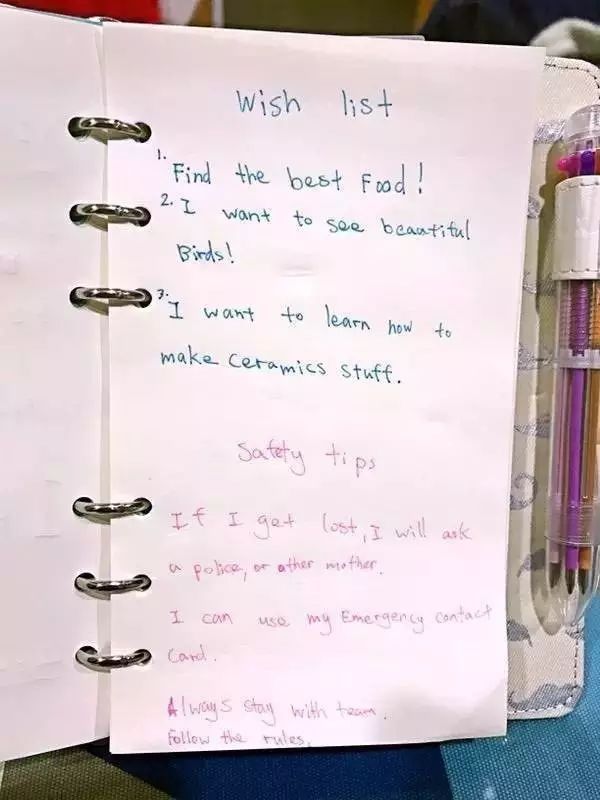 Wish list
1. Find the best Food!
2. I want to see beautiful
Birds!
3. I want to learn how to
make ceramics stuff.
Safety tips
If I get lost, I will ask
a police, or other mother.
I can use my Emergency contact
card.
Always stay with team.
Follow the rules.